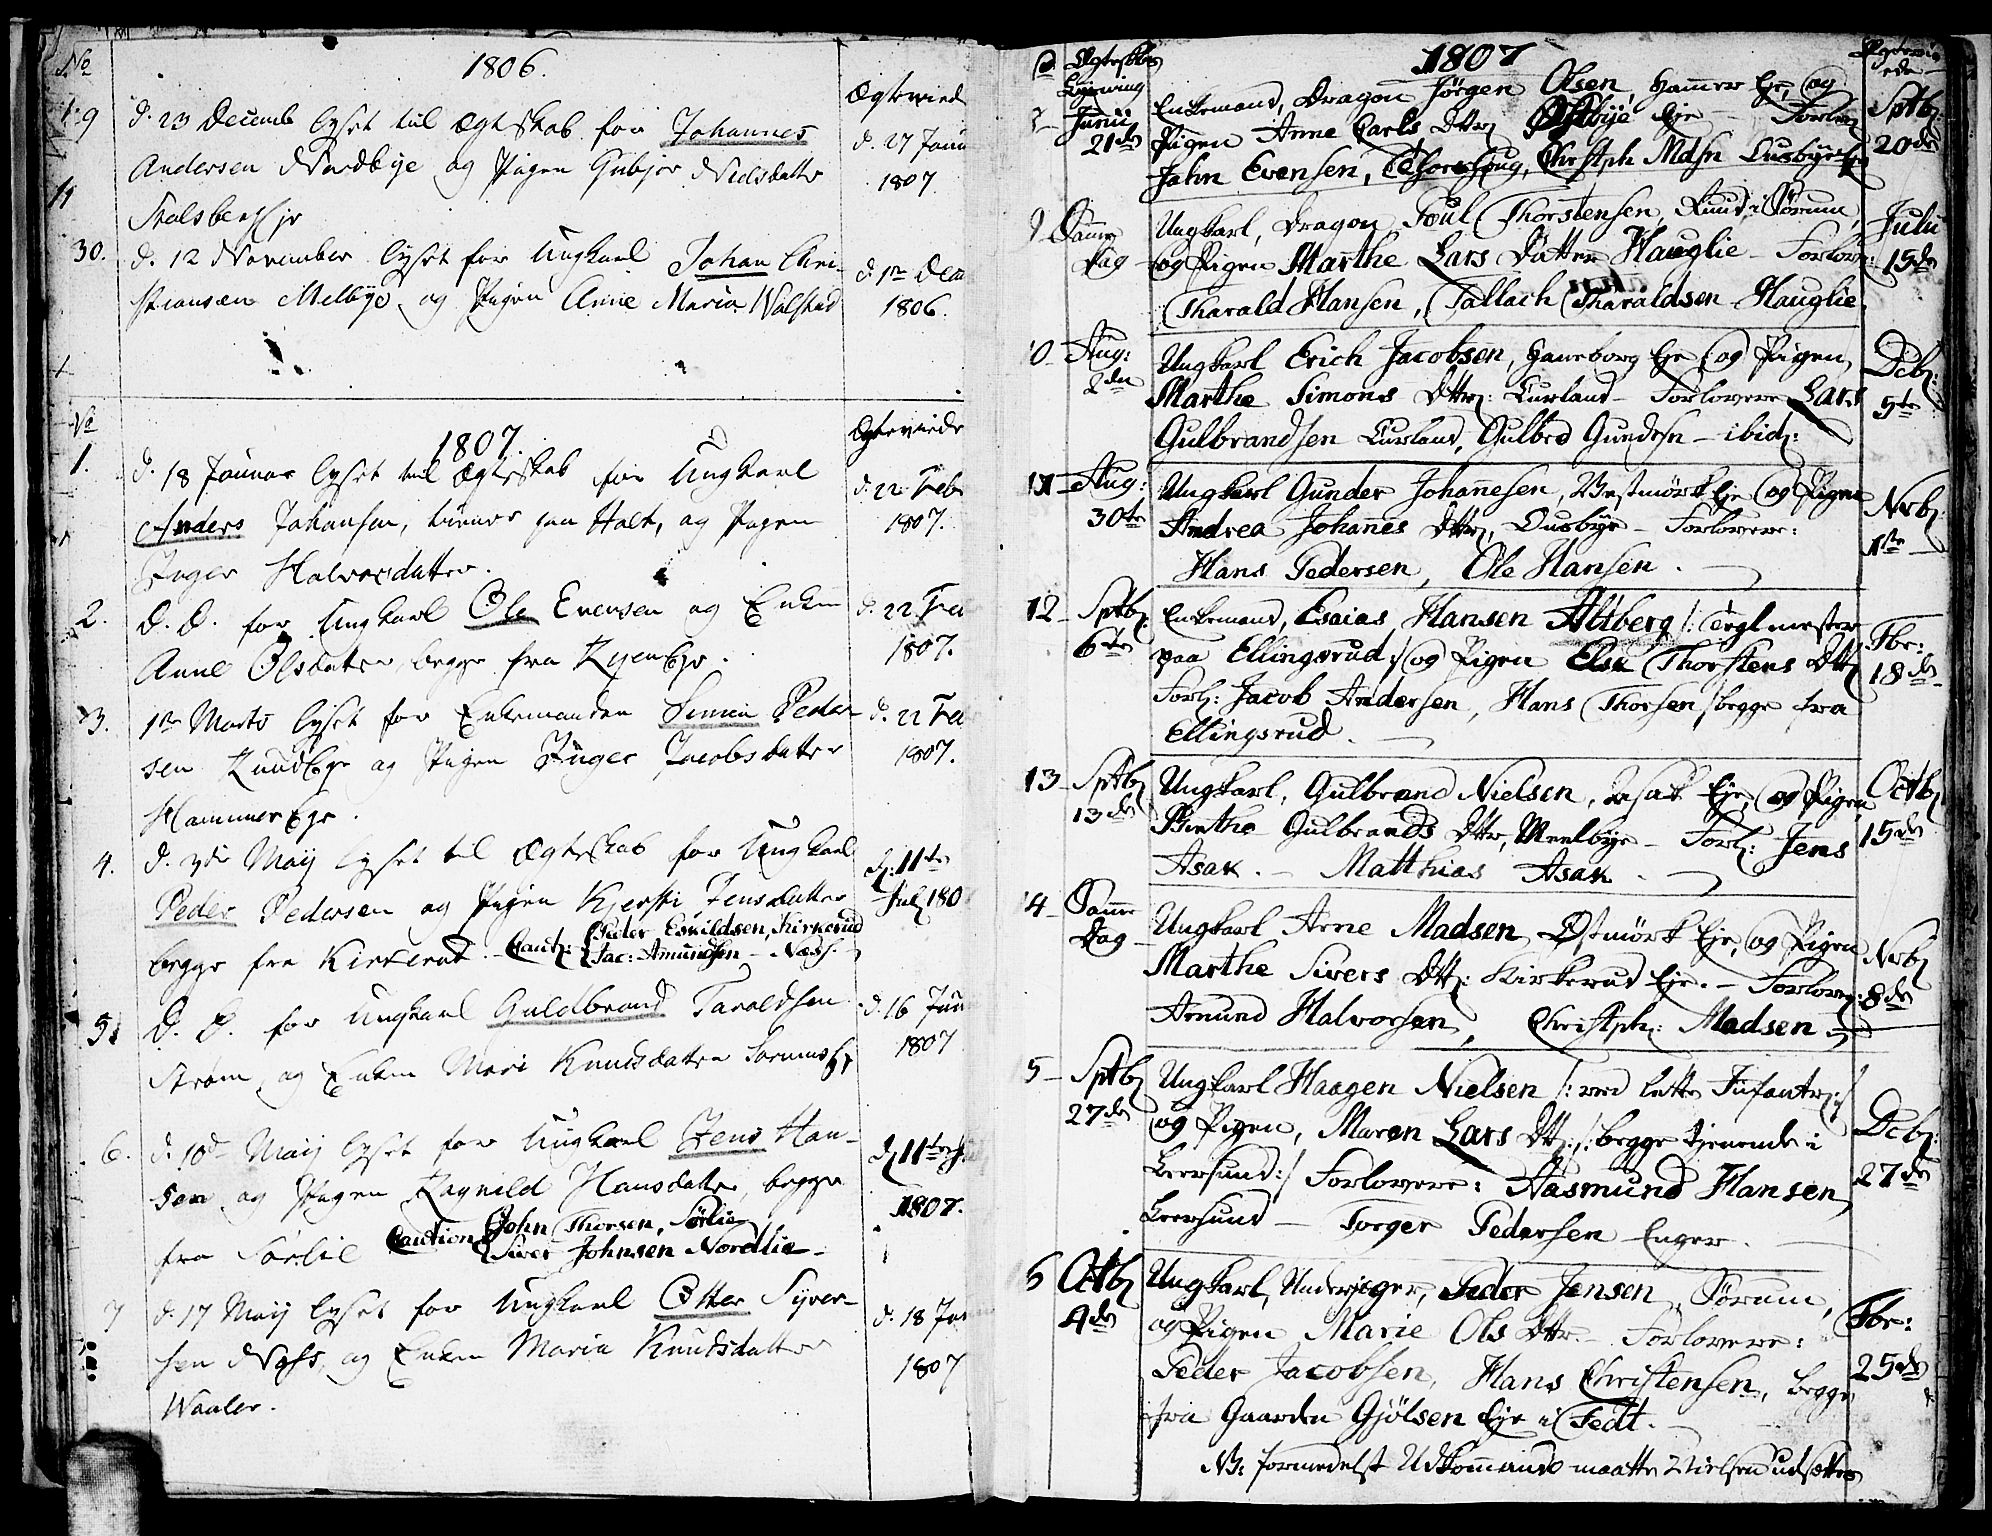 No
1806.
Ægteviede
d. 23 Decemb lyset til Ægteskab for Johannes
d. 27 Janu
Andersen Nordbye og Pigen Gubjør Nielsdatter
1807
Stalsberg Eje
30.
d. 12 November lyset for Ungkarl Johan Chri-
d. 1ste Dec
stiansen Melbye og Pigen Anne Maria Walstad
1806.
No
1807.
Ægteviede
1.
d. 18 Januar lyset til Ægteskab for Ungkarl
d. 22 Febr
Anders Johansen, tiener paa Holt, og Pigen
1807.
Inger Halvorsdatter.
2.
D. D. for Ungkarl Ole Evensen og Enken
d. 22 Feb
Anne Olsdatter, begge fra Ryen Eje.
1807.
3.
1ste Marts lyset for Enkemanden Simen Peder-
d. 22 Feb
sen Rund Eje og Pigen Inger Jacobsdatter
1807.
Hammer Eje.
4.
d. 3die Maij lyset til Ægteskab for Ungkarl
d: 11te
Peder Pedersen og Pigen Kjersti Jensdatter
Julj 180
begge fra Kirkerud. Caut: Peder Eskildsen, Kirkerud
Jac: Amundsen - Næss.
5.
D. D. for Ungkarl Guldbrand Taraldsen
d. 16 Jun
Strøm, og Enken Mari Knudsdatter Sørum Eje
1807
6.
d. 10de Maij lyset for Ungkarl Jens Han-
d: 11te
sen og Pigen Ragnild Hansdatter, begge
1807.
fra Sørlie Caution John Thorsen, Sørlie
Siver Johnsen Nordlie
7
d. 17 Maij lyset for Ungkarl Otter Syver-
d. 18 Ju
sen Næss, og Enken Maria Knudsdatter
1807
Waaler.
1807
Ægteskabs
Lysning
Junii
21de
Enkemand, Dragon Jørgen Olsen, Hammer Eje, og
Pigen Anne Carls Dttr Østbye Eje - Forlov:
John Evensen, Christph Mdsn Lusbye
Sptbr
20de
Samme
Dag
Ungkarl, Dragon Poul Thorstensen, Rund i Sørum,
og Pigen Marthe Lars Datter Hauglie - Forlov:
Tharald Hansen, Tallach Tharaldsen Hauglie.
Julii
15de
10
Aug:
2den
Ungkarl Erich Jacobsen, Haneborg Eje, og Pigen
Marthe Simons Dttr: Lurland - Forlovere Lars
Gulbrandsen Lurland, Gulbrd Gundrsn - ibid:
Dcbr:
5te
11
Aug:
30te
Ungkarl Gunder Johanesen, Westmørk Eje og Pigen
Andrea Johanes Dttr, Lusbye - Forlovere:
Hans Pedersen, Ole Hansen.
Nvbr:
1ste
12
Sptbr
6te
Enkemand, Esaias Hansen Altberg /: Teglmester
paa Ellingsrud :/ og Pigen Else Thorstens Dttr
Forl: Jacob Andersen, Hans Thorsen / begge fra
Ellingsrud.
Fbr:
18de
13
Sptbr
13de
Ungkarl, Gulbrand Nielsen, Asak Eje, og Pigen
Birthe Gulbrands Dttr, Meelbye - Forl: Jens
Asak. - Matthias Asak.
Octbr
15de
14
Samme
Dag
Ungkarl Arne Madsen Østmørk Eje, og Pigen
Marthe Sivers Dttr: Kirkerud Eje. - Forlover:
Amund Halvorsen, Christph: Madsen
Nvbr
8de
5
Sptbr
27de
Ungkarl Haagen Nielsen /: ved lette Infantr: /
og Pigen, Maren Lars Dttr /: begge tjenende i
Leersund :/ Forlovere: Aasmund Hansen
Leersund - Torger Pedersen Enger.
Dcbr:
27de
6
Octbr
4de
Ungkarl, Underjeger, Peder Jensen, Sørum,
og Pigen Marie Ols Dttr. - Forlovere:
Peder Jacobsen, Hans Christensen, begge
fra Gaarden Gjølsen Eje i Fedt.
Fbr:
25de
NB: formedelst Udkommando maatte Vielsen udsættes